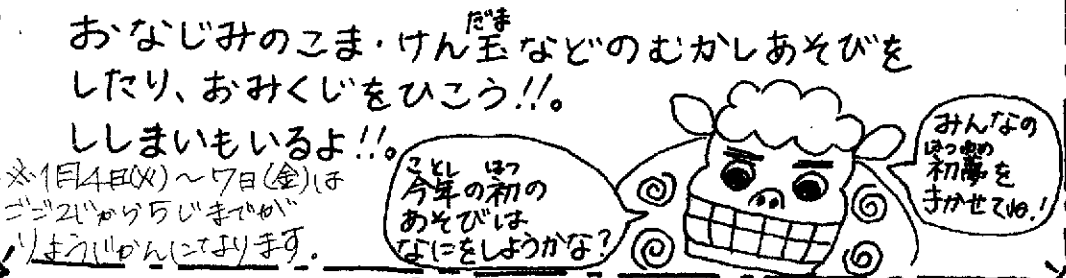 おなじみのこま・けん玉などのむかしあそびを
だま
したり、おみくじをひこう!!。
ししまいもいるよ!!。
※1月4日(火)～7日(金)は
ごご2じから5じまでが
りようじかんになります。
ことし はつ
今年の初の
あそびは
なにをしようかな?
みんなの
はつゆめ
初夢を
きかせてね!